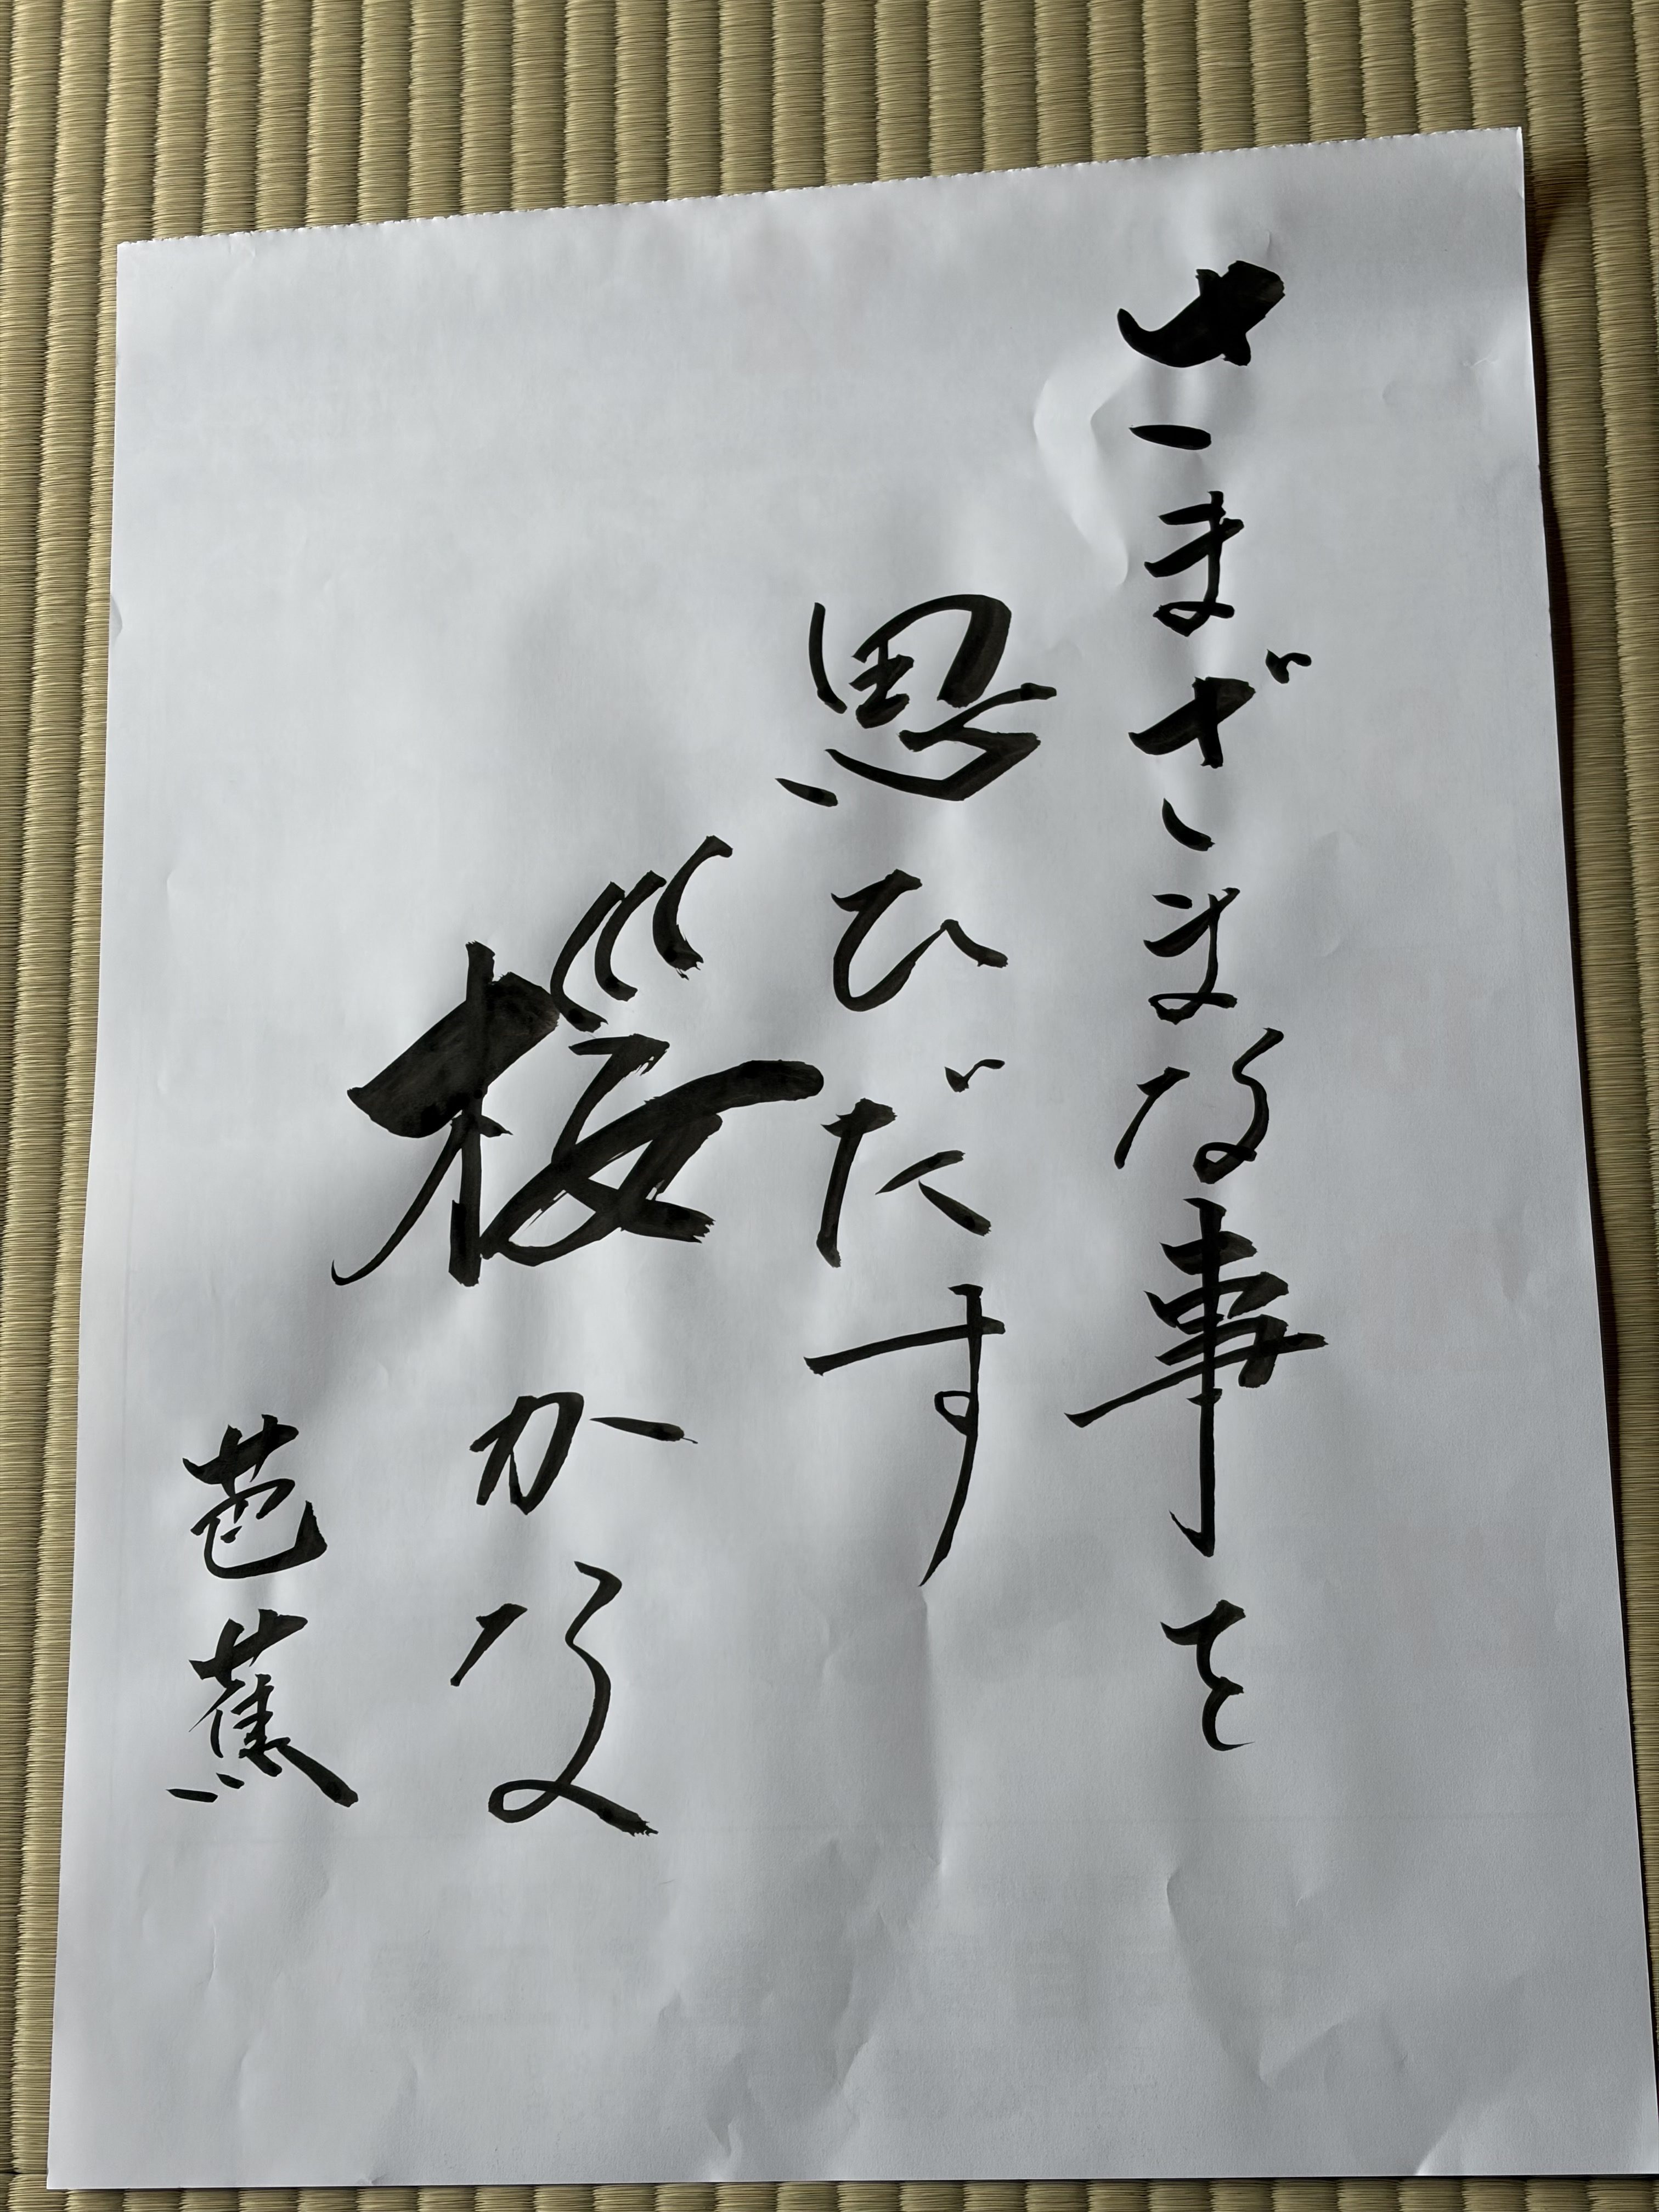 さまざまな事を
思ひだす
桜かな
芭蕉